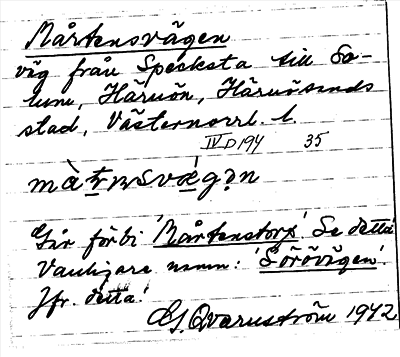 Mårtensvägen
väg från Specksta till Sa-
lum, Härnön, Härnösands
stad, Västernorrl. l.
IV D 194 35
mà̀ṭṇsvǽgən
Går förbi 'Mårtenstorp'. Se detta
Vanligare namn: 'Sörövägen'.
Jfr. detta!
G. Qvarnström 1942